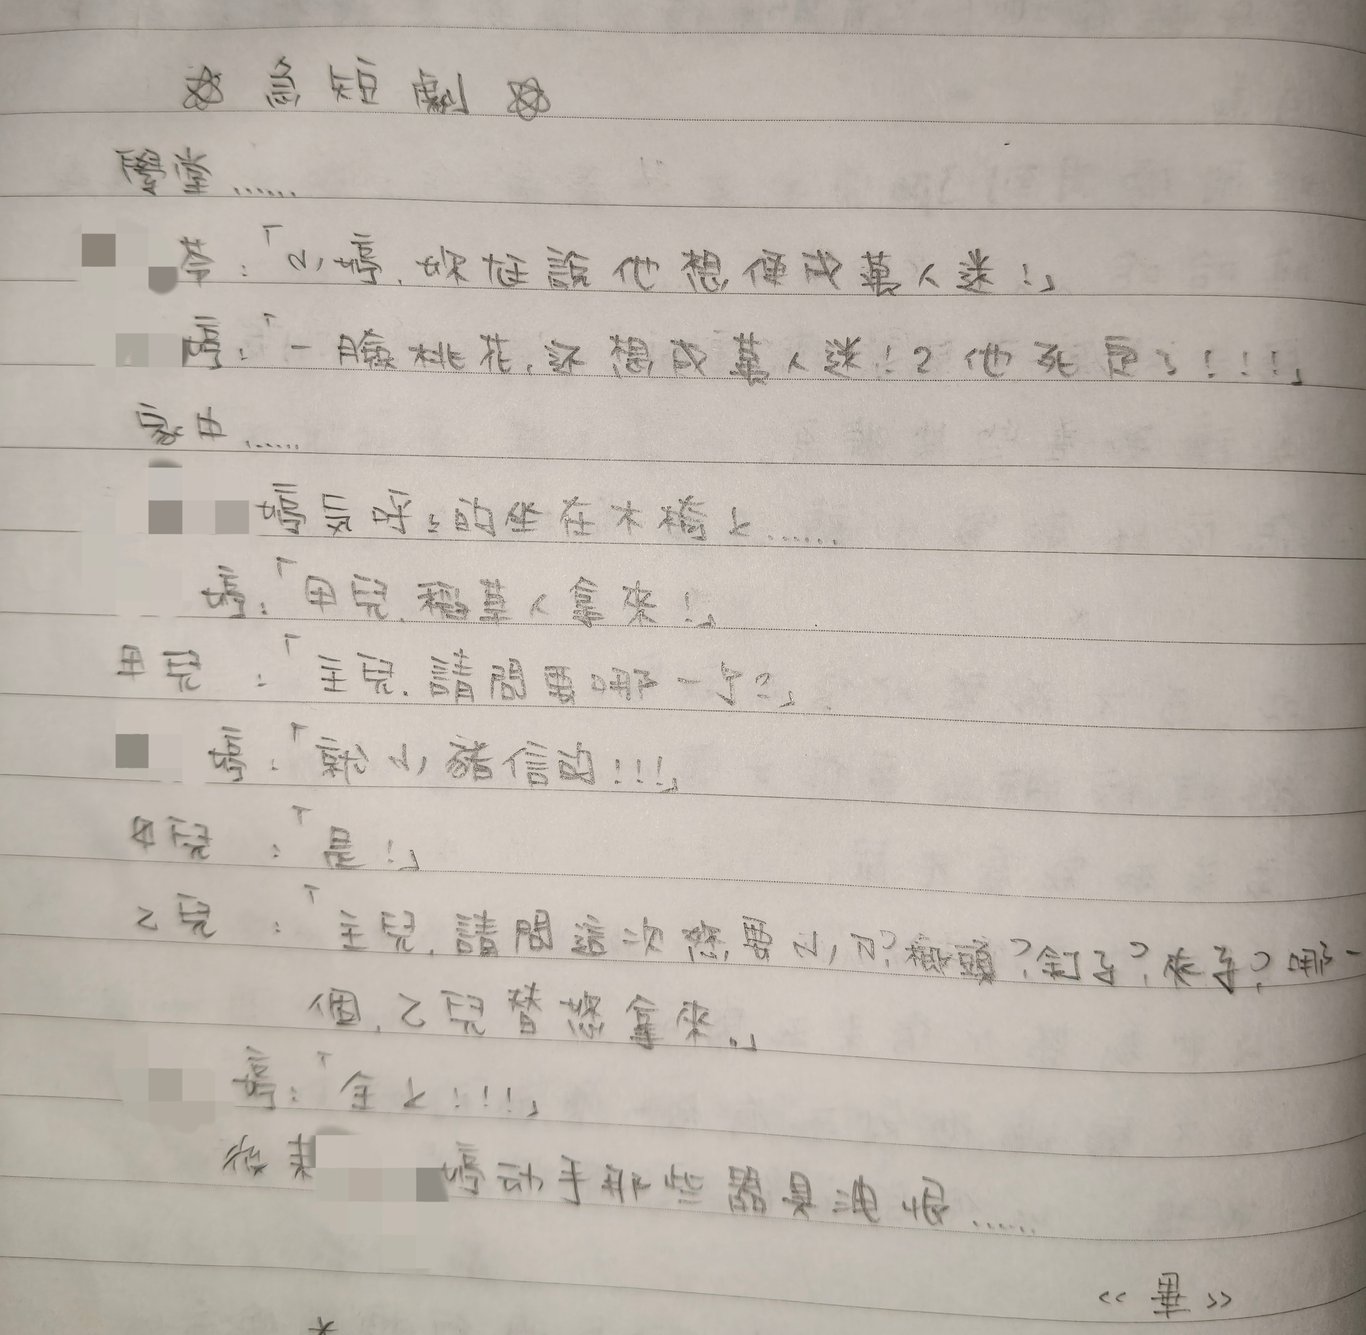 ☆ 急短劇 ☆
學堂……
苓:「小婷,妳尪說他想便成萬人迷!」
婷:「一臉桃花,还想成萬人迷!?他死定了!!!」
家中……
婷気呼々的坐在木椅上……
婷:「甲兒,稻草人拿來!」
甲兒:「主兒,請問要哪一个?」
婷:「就小豬信的!!!」
甲兒:「是!」
乙兒:「主兒,請問這次您要小刀?榔頭?釘子?夾子?哪一
個,乙兒替您拿來。」
婷:「全上!!!」
後來 婷动手那些器具洩恨……
<<畢>>